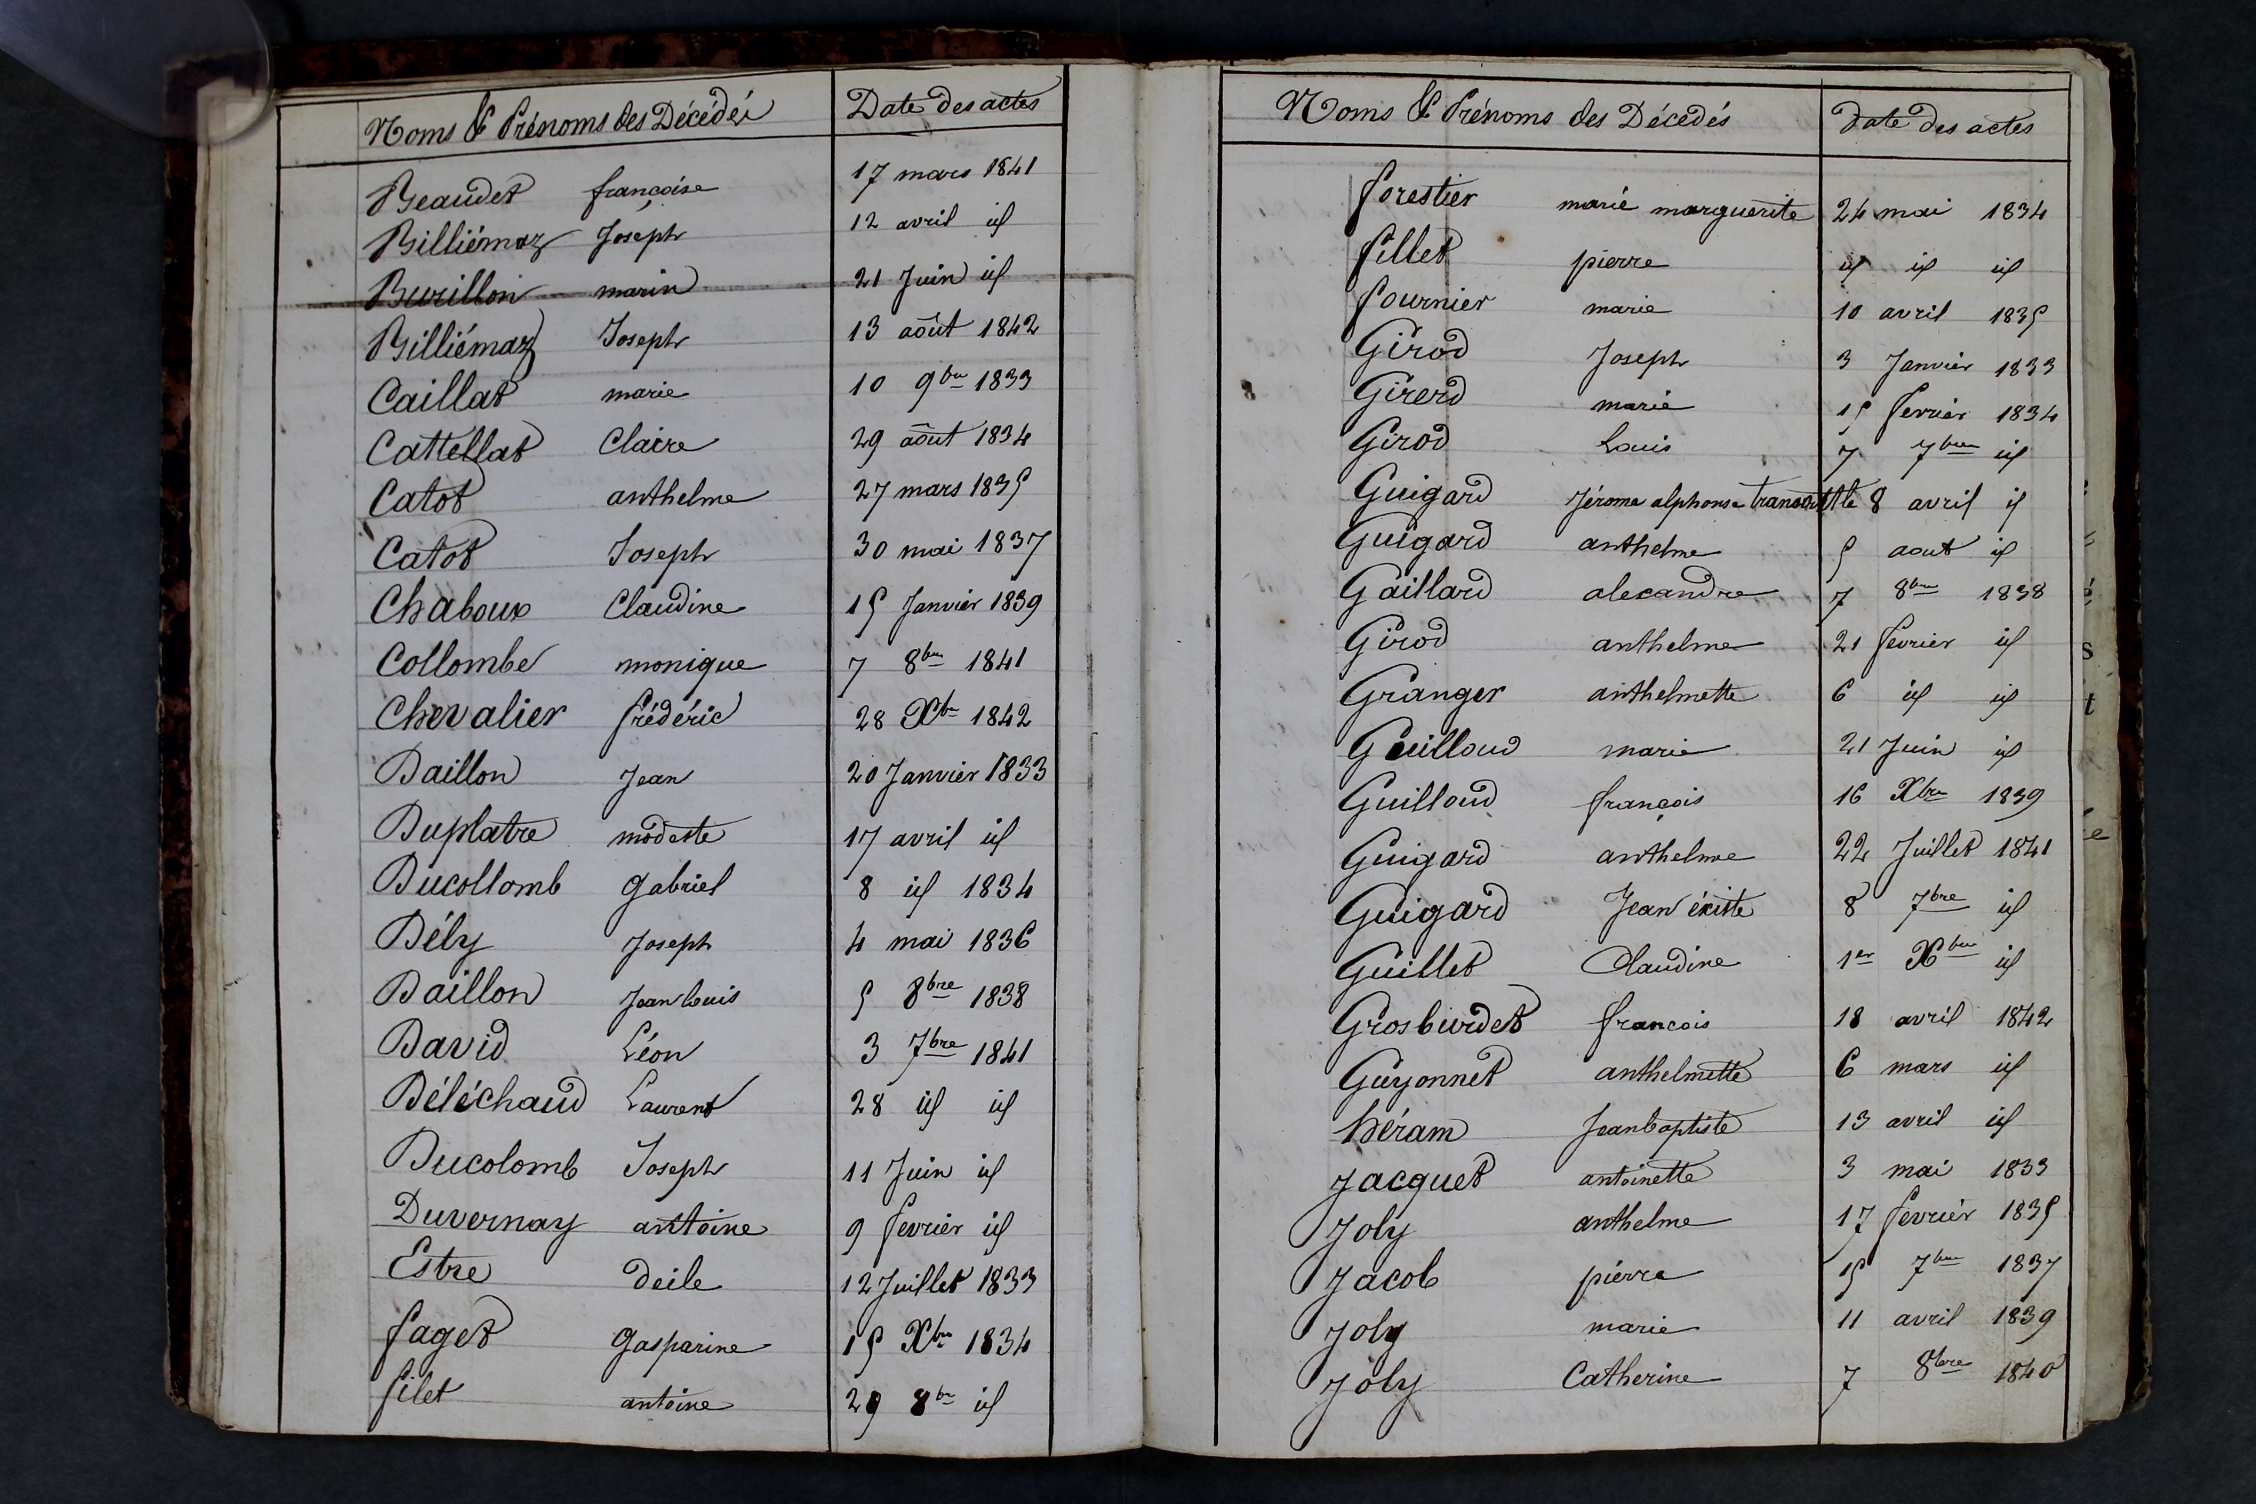 Noms & Prénoms des Décédés Date des actes
Beaudet françoise 17 mars 1841
Billiémaz Joseph 12 avril id
Burillon marin 21 Juin id
Billiémaz Joseph 13 août 1842
Caillat marie 10 9bre 1833
Cattellat Claire 29 août 1834
Catot anthelme 27 mars 1835
Catot Joseph 30 mai 1837
Chaboux Claudine 15 Janvier 1839
Collombe monique 7 8bre 1841
Chevalier frédéric 28 Xbre 1842
Daillon Jean 20 Janvier 1833
Duplatre modeste 17 avril id
Ducollomb gabriel 8 id 1834
Dély Joseph 4 mai 1836
Daillon Jean Louis 5 8bre 1838
David Léon 3 7bre 1841
Déléchaud Laurent 28 id id
Ducolomb Joseph 11 Juin id
Duvernay antoine 9 fevrier id
Estre deile 12 Juillet 1833
faget gasparine 15 Xbre 1834
filet antoine 29 8bre id
Noms & Prénoms des Décédés date des actes
forestier marie marguerite 24 mai 1834
fillet pierre id id id
fournier marie 10 avril 1835
Girod Joseph 3 Janvier 1833
Girerd marie 15 fevrier 1834
Girod Louis 7 7bre id
Guigard Jérome alphonse 8 avril id
Guigard anthelme 5 aout id
Gaillard alexandre 7 8bre 1838
Girod anthelme 21 fevrier id
Granger anthelmette 6 id id
Guilloud marie 21 Juin id
Guilloud françois 16 Xbre 1839
Guigard anthelme 22 Juillet 1841
Guigard Jean éxiste 8 7bre id
Guillet Claudine 1er Xbre id
Grosburdet francois 18 avril 1842
Guyonnet anthelmette 6 mars id
héram Jean baptiste 13 avril id
Jacquet antoinette 3 mai 1833
Joly anthelme 17 fevrier 1835
Jacob pierre 15 7bre 1837
Joly marie 11 avril 1839
Joly Catherine 7 8bre 1840